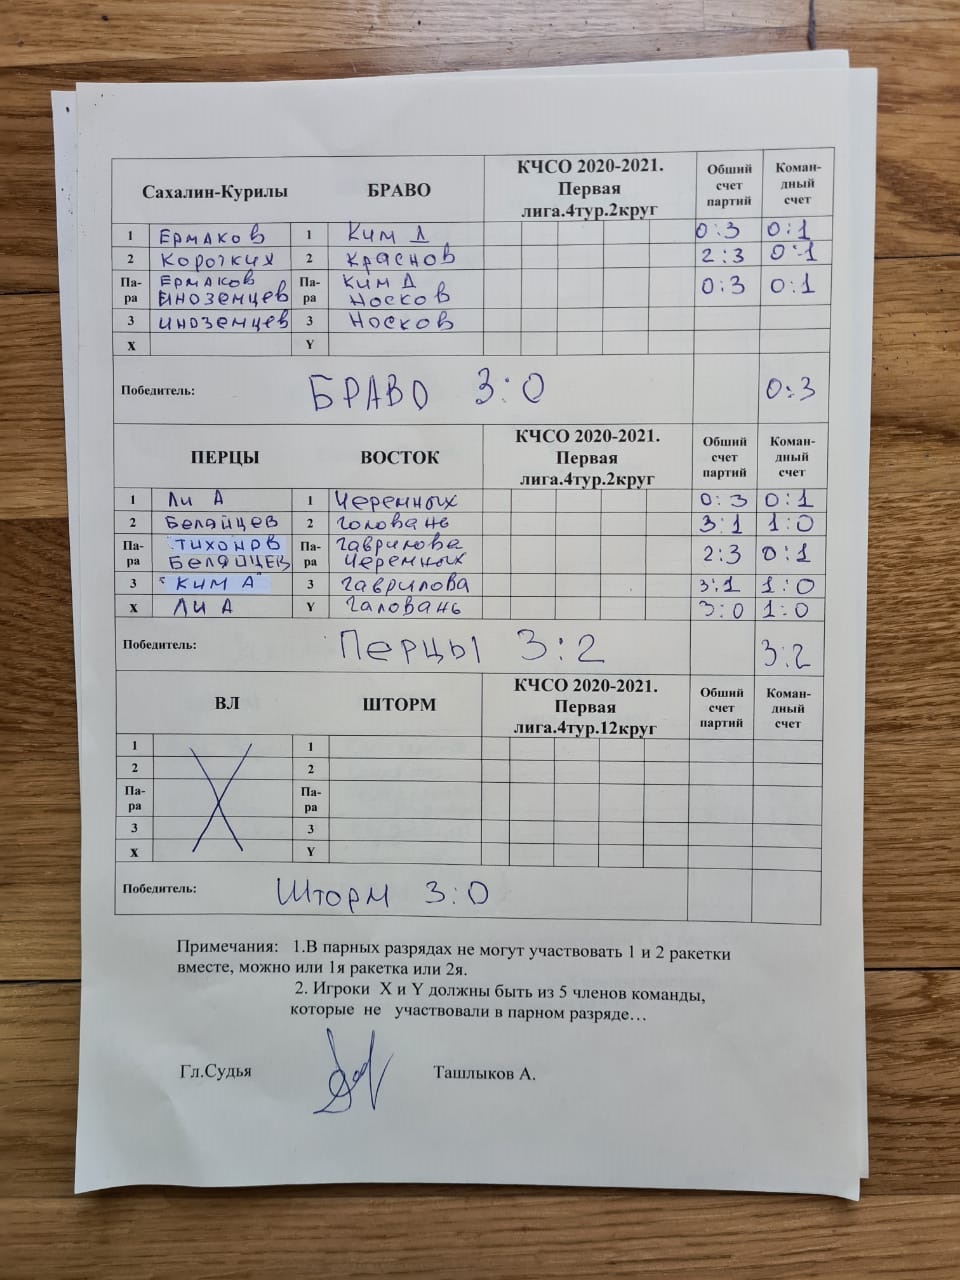 Сахалин-Курилы БРАВО КЧСО 2020-2021. Первая лига.4тур.2круг Обший счет партий Коман-дный счет
1 Ермаков 1 Ким Д 0:3 0:1
2 Коротких 2 Краснов 2:3 0:1
Па-ра Ермаков Ким Д 0:3 0:1
Иноземцев Носков
3 Иноземцев 3 Носков
X Y
Победитель: БРАВО 3:0 0:3
ПЕРЦЫ ВОСТОК КЧСО 2020-2021. Первая лига.4тур.2круг Обший счет партий Коман-дный счет
1 Ли А 1 Черемных 0:3 0:1
2 Беляйцев 2 Головань 3:1 1:0
Па-ра Тихонов Па-ра Гаврилова 2:3 0:1
Беляйцев Черемных
3 "Ким А" 3 Гаврилова 3:1 1:0
X Ли А Y Галовань 3:0 1:0
Победитель: Перцы 3:2 3:2
ВЛ ШТОРМ КЧСО 2020-2021. Первая лига.4тур.12круг Обший счет партий Коман-дный счет
1 1
2 2
Па-ра Па-ра
3 3
X Y
Победитель: Шторм 3:0
Примечания: 1.В парных разрядах не могут участвовать 1 и 2 ракетки
вместе, можно или 1я ракетка или 2я.
2. Игроки X и Y должны быть из 5 членов команды,
которые не участвовали в парном разряде…
Гл.Судья Ташлыков А.